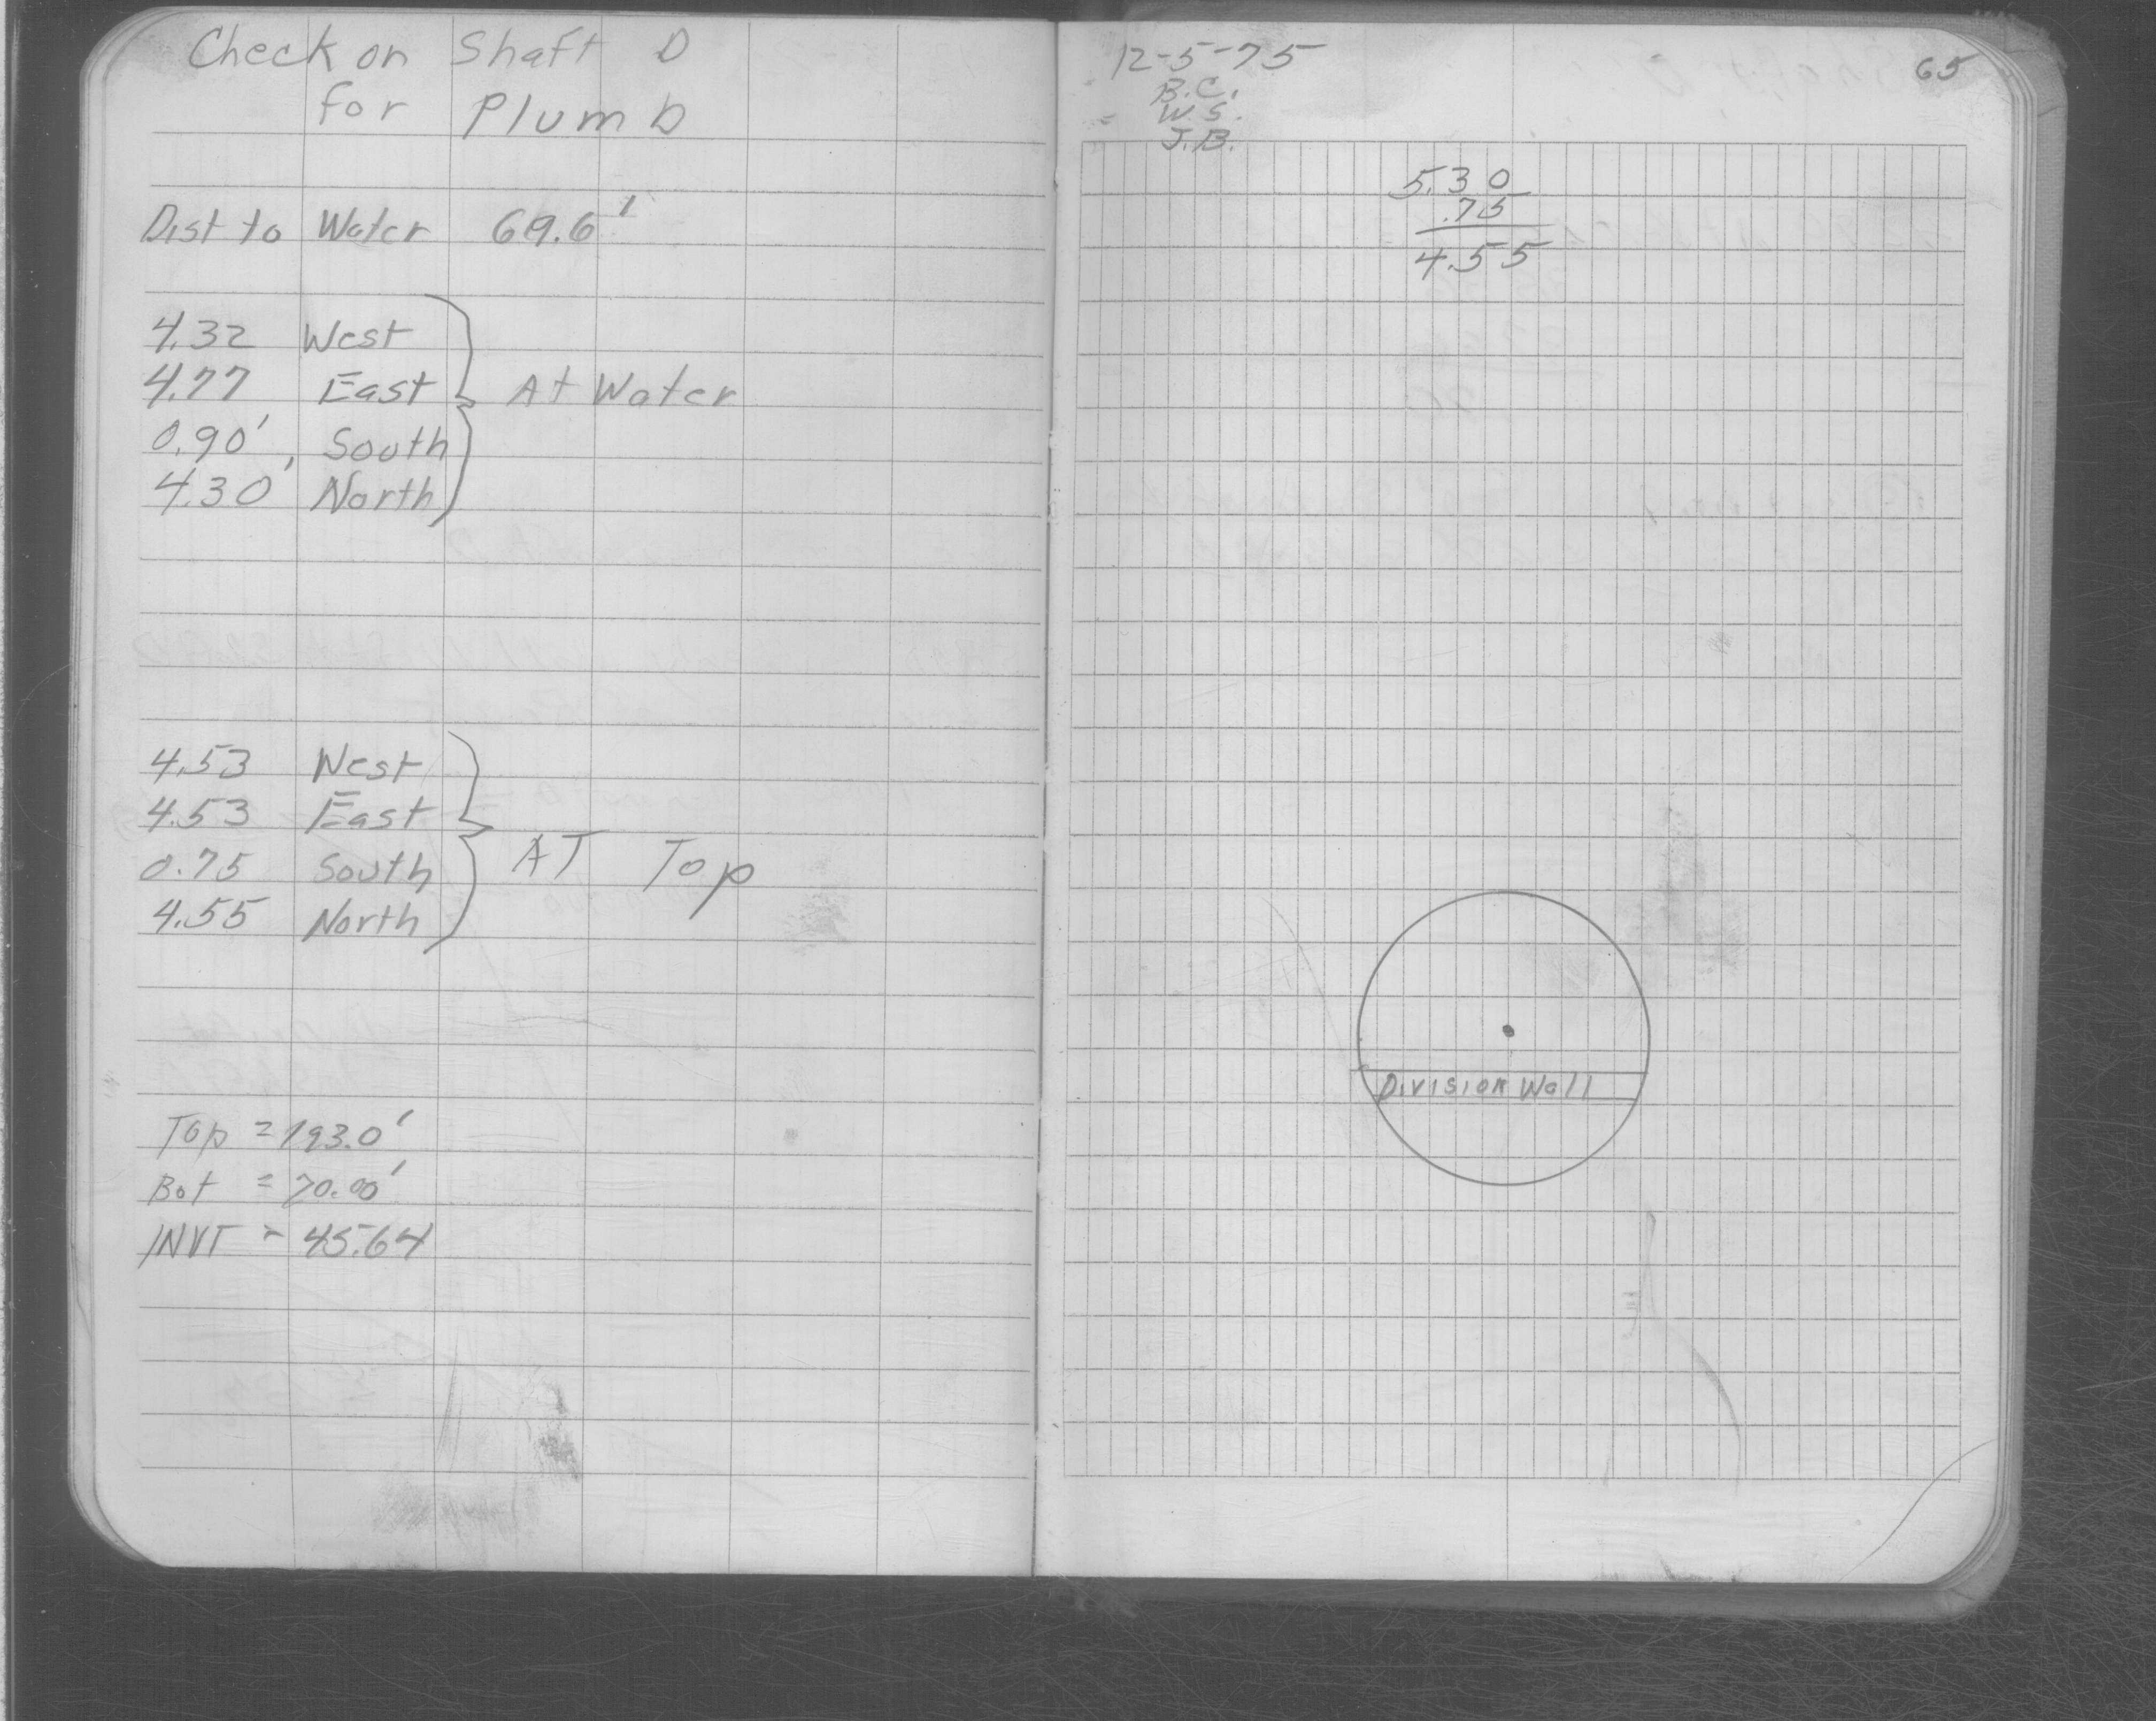 Check on Shaft D
for Plumb
Dist to Water 69.6'
4.32 West
4.77 East
At Water
0.90' South
4.30' North
4.53 West
4.53 East
AT Top
0.75 South
4.55 North
Top = 193.0'
Bot = 70.00'
INVT = 45.64
12-5-75
65
B.C.
W.S.
J.B.
5.30
.75
4.55
Division Wall